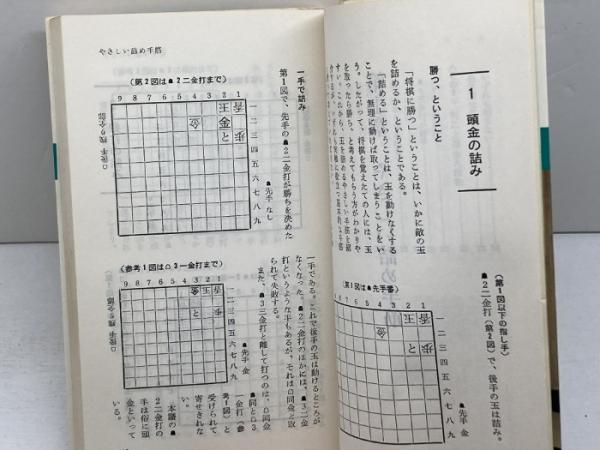 1 頭金の詰み
勝つ、ということ
「将棋に勝つ」ということは、いかに敵の玉
を詰めるか、ということである。
「詰める」ということは、玉を動けなくする
ことで、無理に動けば取ってしまうことをい
う。したがって、将棋を覚えたての人には、玉
を取ったら勝ち、と考えてもらう方がわかりや
すい。これから、玉を詰めるやさしい形を
（第1図は☗先手番）
9 8 7 6 5 4 3 2 1
王 香
金
と 歩
一二三四五六七八九
☗先手 金
（第1図以下の指し手）
☗2二金打（第2図）で、後手の玉は詰み。
やさしい詰め手筋
一手で詰み
第1図で、先手の☗2二金打が勝ちを決めた
（第2図は☗2二金打まで）
9 8 7 6 5 4 3 2 1
王 香
金 金
と 歩
一二三四五六七八九
☗先手 なし
一手である。これで後手の玉は動けるところが
なくなった。☗2二金打のほかには、☗3二金
打というような手もあるが、それは☖同金と取
られて失敗する。
また、☗3三金打と離して打つのは、☖同
（参考1図は☖3一金打まで）
9 8 7 6 5 4 3 2 1
一二三四五六七八九
☗先手 金
一金打（参
考1図）と
受けられて
寄せきれな
い。
本譜の☗
2二金打の
手は俗に頭
金といって
いる。